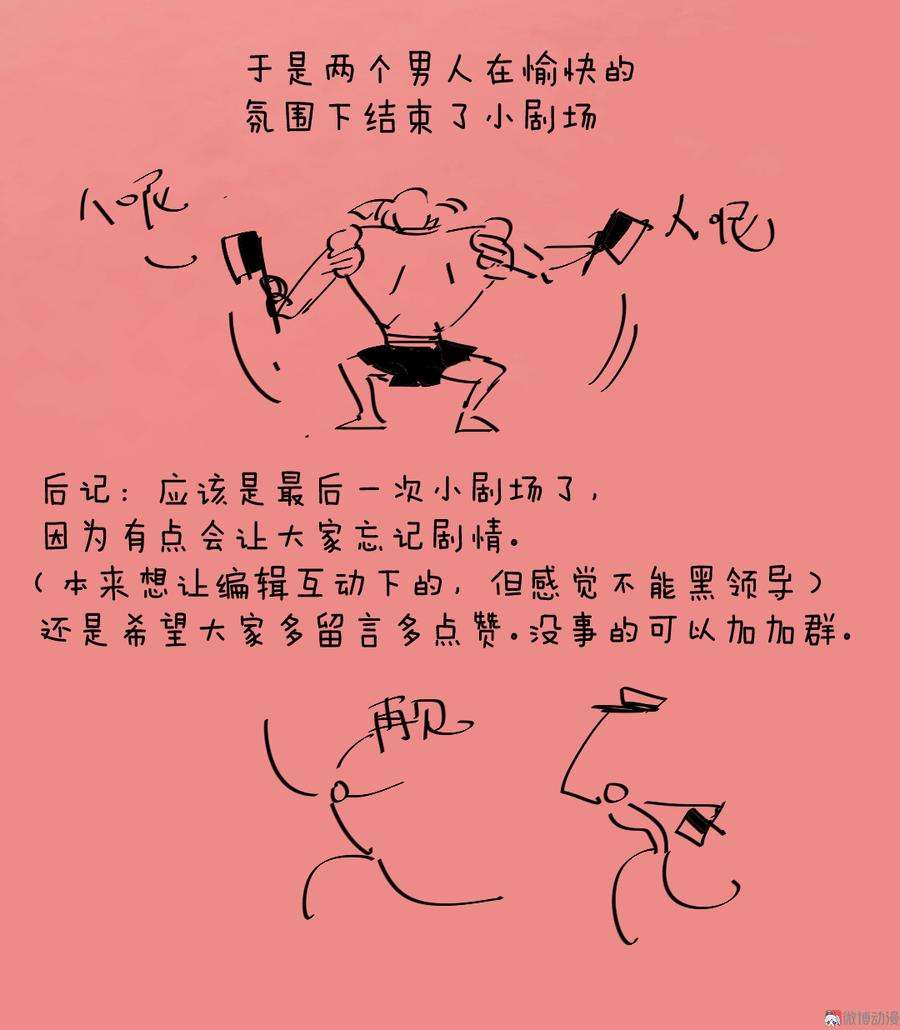 于是两个男人在愉快的
氛围下结束了小剧场
人呢
人呢
后记：应该是最后一次小剧场了，
因为有点会让大家忘记剧情。
（本来想让编辑互动下的，但感觉不能黑领导）
还是希望大家多留言多点赞。没事的可以加加群。
再见
微博动漫